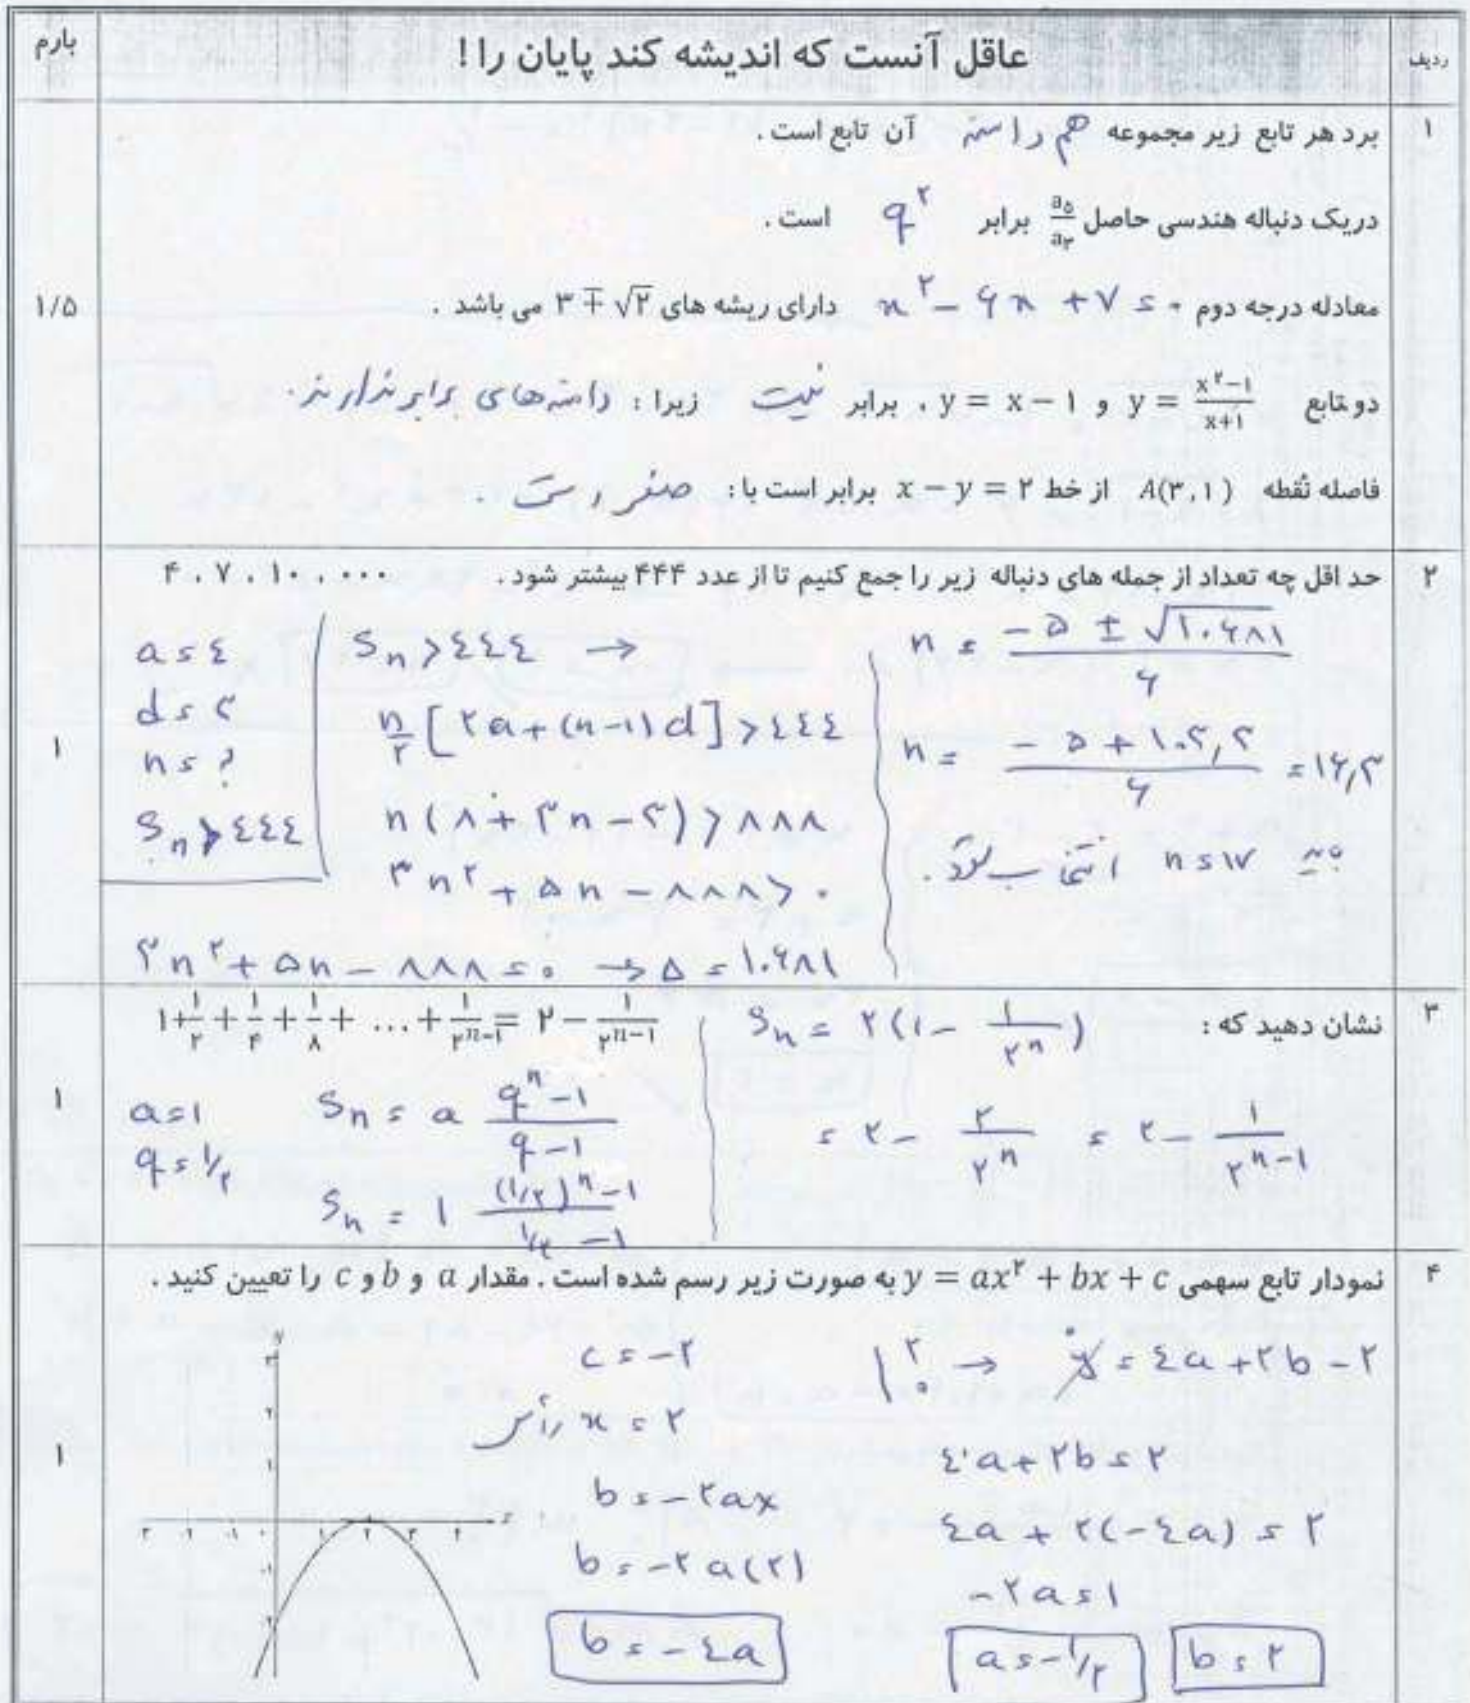 بارم
عاقل آنست که اندیشه کند پایان را!
ردیف
۱
برد هر تابع زیر مجموعه هم دامنه آن تابع است .
دریک دنباله هندسی حاصل a₅/a₃ برابر q² است .
معادله درجه دوم x² - ۶x + ۷ = ۰ دارای ریشه های ۳ ∓ √۲ می باشد .
۱/۵
دو تابع y = (x²-۱)/(x+۱) و y = x - ۱ ، برابر نیست زیرا : دامنه های برابر ندارند .
فاصله نقطه A(۳,۱) از خط x - y = ۲ برابر است با : صفر است .
۲
حد اقل چه تعداد از جمله های دنباله زیر را جمع کنیم تا از عدد ۴۴۴ بیشتر شود . ۴ ، ۷ ، ۱۰ ، ۰۰۰
a = ۴
d = ۳
n = ?
Sₙ > ۴۴۴
Sₙ > ۴۴۴ →
n/۲ [۲a + (n-۱)d] > ۴۴۴
n(۸ + ۳n - ۳) > ۸۸۸
۳n² + ۵n - ۸۸۸ > ۰
۳n² + ۵n - ۸۸۸ = ۰ → Δ = ۱۰۶۸۱
n = (-۵ ± √۱۰۶۸۱)/۶
n = (-۵ + ۱۰۳,۳)/۶ = ۱۶,۳
باید n = ۱۷ انتخاب شود .
۱
۳
نشان دهید که :
۱ + ۱/۲ + ۱/۴ + ۱/۸ + ... + ۱/۲ⁿ⁻¹ = ۲ - ۱/۲ⁿ⁻¹
a = ۱
q = ۱/۲
Sₙ = a (qⁿ - ۱)/(q - ۱)
Sₙ = ۱ ((۱/۲)ⁿ - ۱)/(۱/۲ - ۱)
Sₙ = ۲(۱ - ۱/۲ⁿ)
= ۲ - ۲/۲ⁿ = ۲ - ۱/۲ⁿ⁻¹
۱
۴
نمودار تابع سهمی y = ax² + bx + c به صورت زیر رسم شده است . مقدار a و b و c را تعیین کنید .
c = -۲
x رأس = ۲
b = -۲ax
b = -۲a(۲)
b = -۴a
|۲ ۰ → y = ۴a + ۲b - ۲
۴a + ۲b = ۲
۴a + ۲(-۴a) = ۲
-۲a = ۱
a = -۱/۲
b = ۲
۱